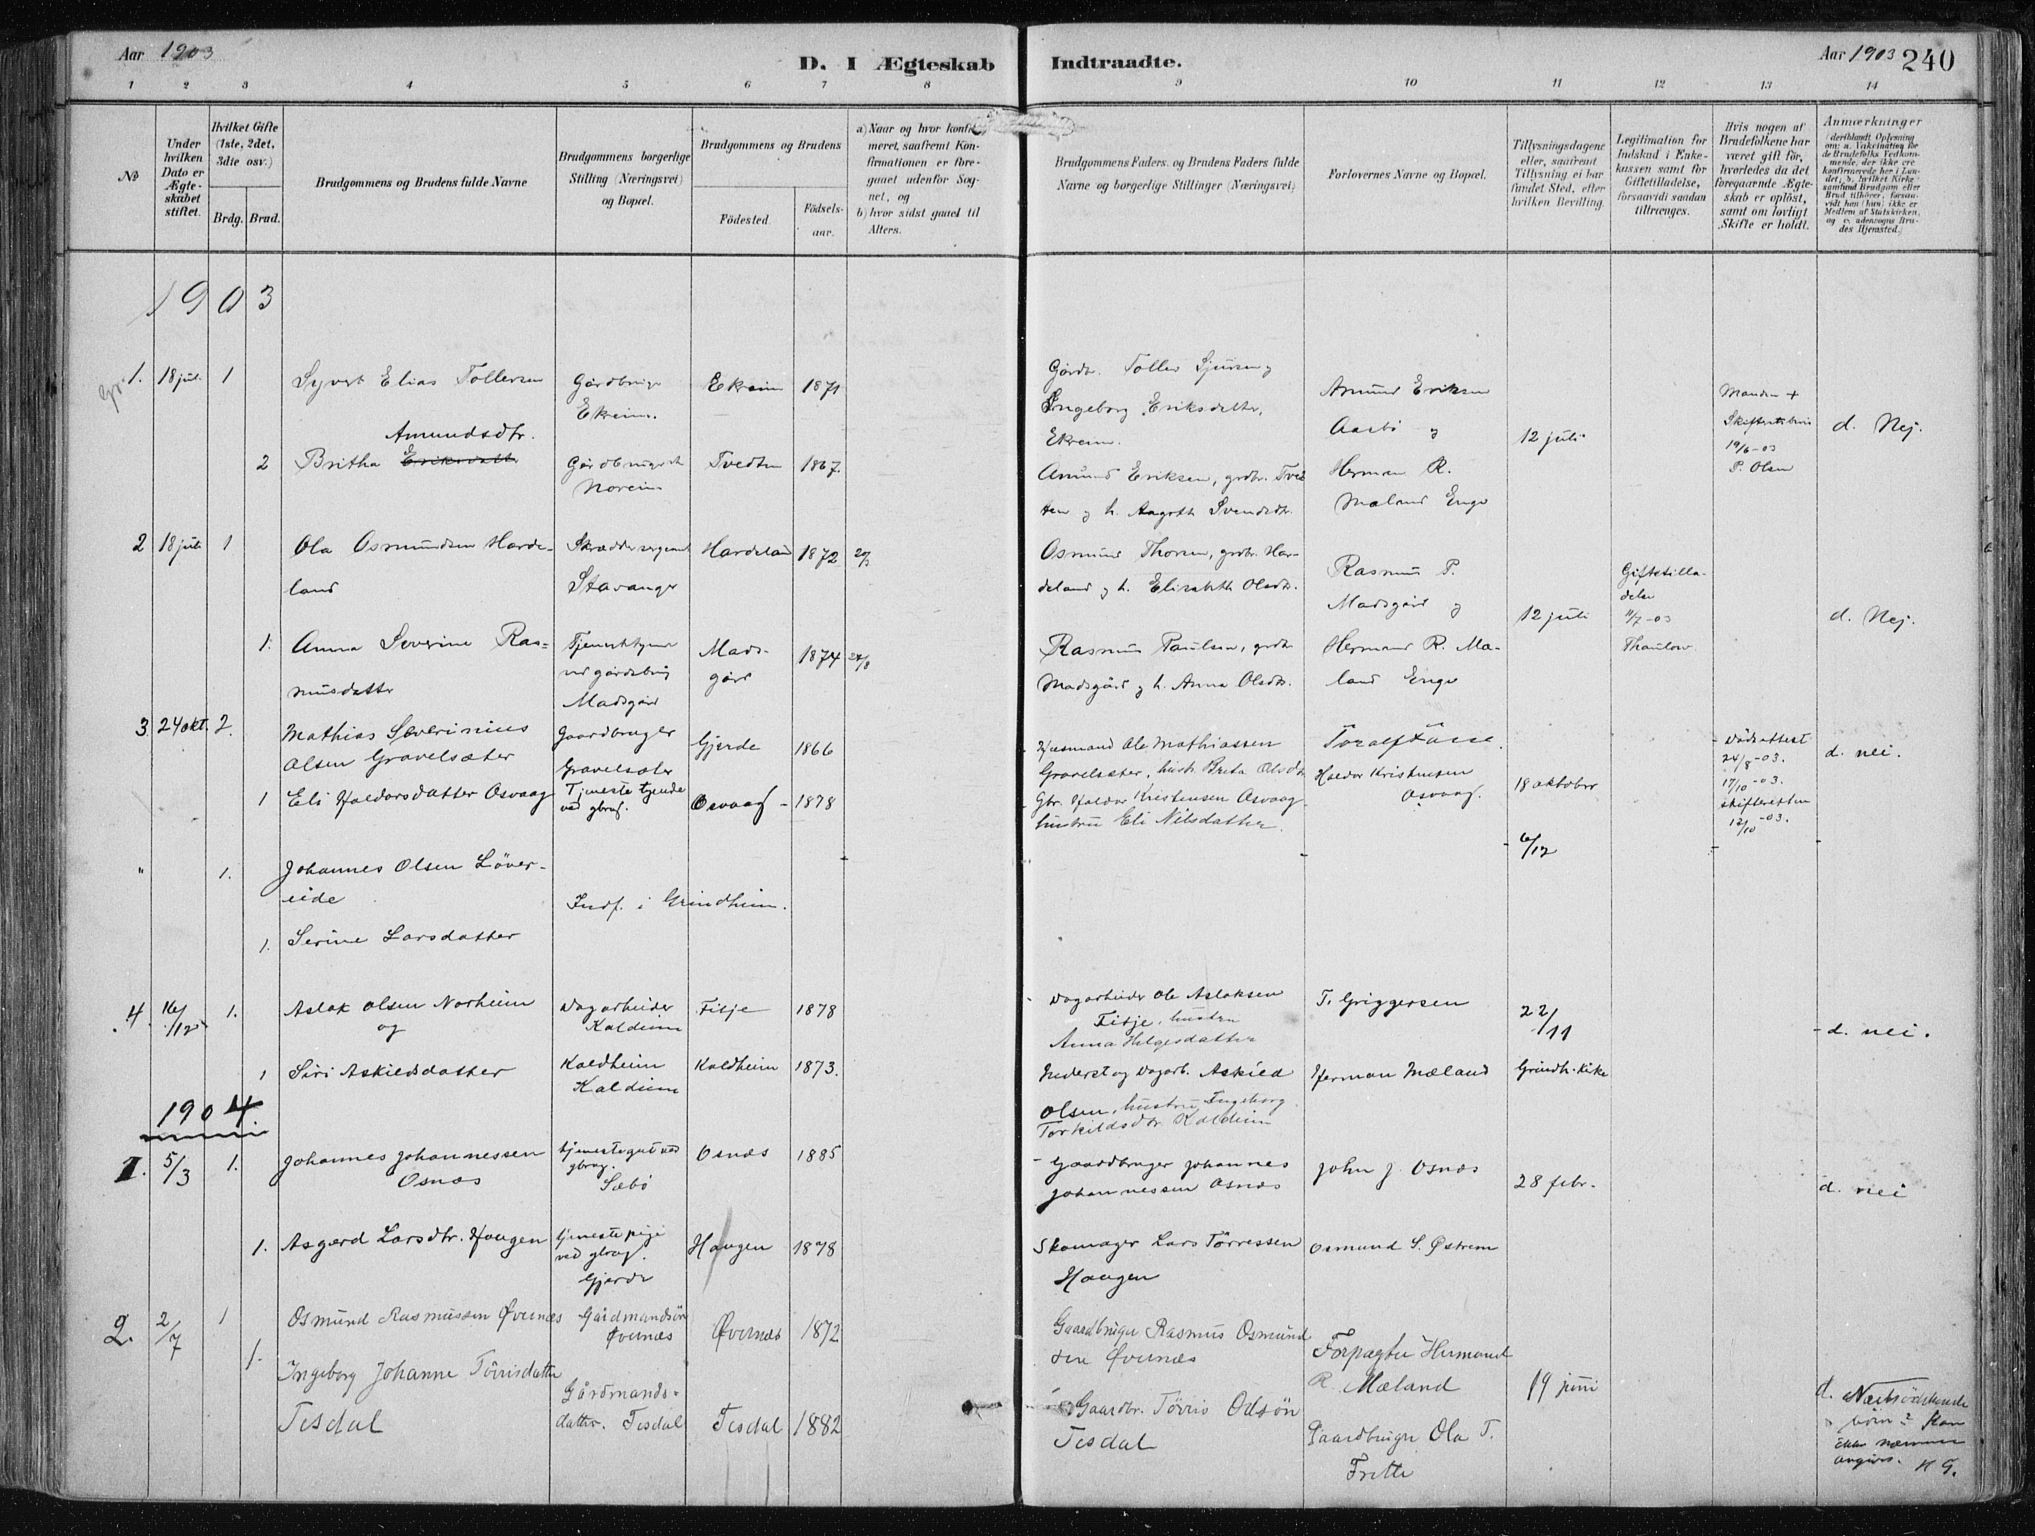 Aar 1903
D. I Ægteskab
Indtraadte.
Aar 1903 240
1 2 3 4 5 6 7 8 9 10 11 12 13 14
No
Under hvilken Dato er Ægteskabet stiftet.
Hvilket Gifte (1ste, 2det, 3die osv.)
Brdg. Brud.
Brudgommens og Brudens fulde Navne
Brudgommens borgerlige Stilling (Næringsvei) og Bopæl.
Brudgommens og Brudens
Födested. Födselsaar.
a) Naar og hvor konfirmeret, saafremt Konfirmationen er foregaaet udenfor Sognet, og
b) hvor sidst gaaet til Alters.
Brudgommens Faders, og Brudens Faders fulde Navne og borgerlige Stillinger (Næringsvei)
Forlovernes Navne og Bopæl.
Tillysningsdagene eller, saafremt Tillysning ei har fundet Sted, efter hvilken Bevilling.
Legitimation for Indskud i Enkekassen samt for Giftetilladelse, forsaavidt saadan tiltrænges.
Hvis nogen af Brudefolkene har været gift för, hvorledes da det foregaaende Ægteskab er oplöst, samt om lovligt Skifte er holdt.
Anmærkninger
1903
1. 18 jul. 1
Syvert Elias Tollersen
Gårdbruger
Ekreim.
Ekreim 1871
Gårdb. Tollev Sjursen og
Ingeborg Eriksdatter,
Ekreim.
Amund Eriksen
Aasbö og
12 juli
Manden +
Skifteretsbevis
19/6-03
P. Olsen
d. Nej.
Amundsdtr.
2 Britha Eriksdatter
Noreim
Tvedten 1867.
Amund Eriksen, grdbr. Tved
ten og h. Aagoth Svendsdtr.
Herman R.
Mæland Enge
2 18 juli 1
Ola Osmundsen Harde-
land
Skræddersergeant
Stavanger
Hardeland 1872 20/3
Osmund Thorsen, grdbr. Har-
deland og h. Elisabeth Olsdtr.
Rasmus P.
Madsgård og
12 juli
Giftetilla-
delse
11/7-03
Thaulow
d. Nej.
1. Anna Severine Ras-
musdatter
ved gårdsbrug
Madsgård
Mads-
gård
1874 24/8
Rasmus Paulsen, grdbr.
Madsgård og h. Anna Olsdtr.
Herman R. Mæ-
land Enge
3 24 okt. 2.
Mathias Severinius
Olsen Gravelsæter
Gaardbruger
Gravelsæter
Gjerde 1866
Husmand Ole Mathiassen
Gravelsæter, hustr. Brita Olsdtr.
Toralf Faose.
18 oktober
Dödsattest
24/8-03.
17/10-03.
skifteretten
12/10-03.
d. nei.
1 Eli Haldorsdatter Osvaag
Tjeneste tjende
ved gbrug.
Osvaag - 1878
Gbr. Haldor Kristensen Osvaag
hustru Eli Nilsdatter.
Haldor Kristensen
Osvaag.
" 1. Johannes Olsen Löver-
eide
Indf. i Grindheim.
6/12
1. Serine Larsdatter
4. 16/12 1.
Aslak Olsen Norheim
og
Dagarbeider
Kaldeim
Fitje 1878
Dagarbeider Ole Aslaksen
Fitje, hustru
Anna Helgesdatter
T. Griggersen
22/11
d. nei.
1 Siri Askildsdatter
Koldheim
Kaldeim
Koldheim 1873.
Inderst og Dagarb. Askild
Olsen, hustru Ingeborg
Torkildsdtr. Kaldeim
Herman Mæland
Grindh. kirke
1904
1. 5/3 1.
Johannes Johannessen
Osnæs
tjenestegut ved
gbrug.
Sæbö
Osnæs 1885
Gaardbruger Johannes
Johannessen Osnæs
John J. Osnæs
28 febr.
d. nei
1. Asgerd Larsdtr. Haugen
tjenestepige
ved gbrug.
Gjerde
Haugen 1878
Skomager Lars Törressen
Haugen
Osmund S. Østrem
2. 2/7 1
Osmund Rasmussen Øvernes
Gårdmandsön
Øvernæs
Øvernæs 1872
Gaardbruger Rasmus Osmund
sen Øvernæs
Forpagter Hermand
R. Mæland
19 juni
1. Ingeborg Johanne Törrisdatter
Tesdal
Gårdmands-
datter. Tesdal
Tesdal 1882
Gaardbr. Törris Odsön
Tesdal
Gaardbruger Ola T.
Frette
d. Næstsödskende
börn? Kan
ikke nærmere
angives. H G.